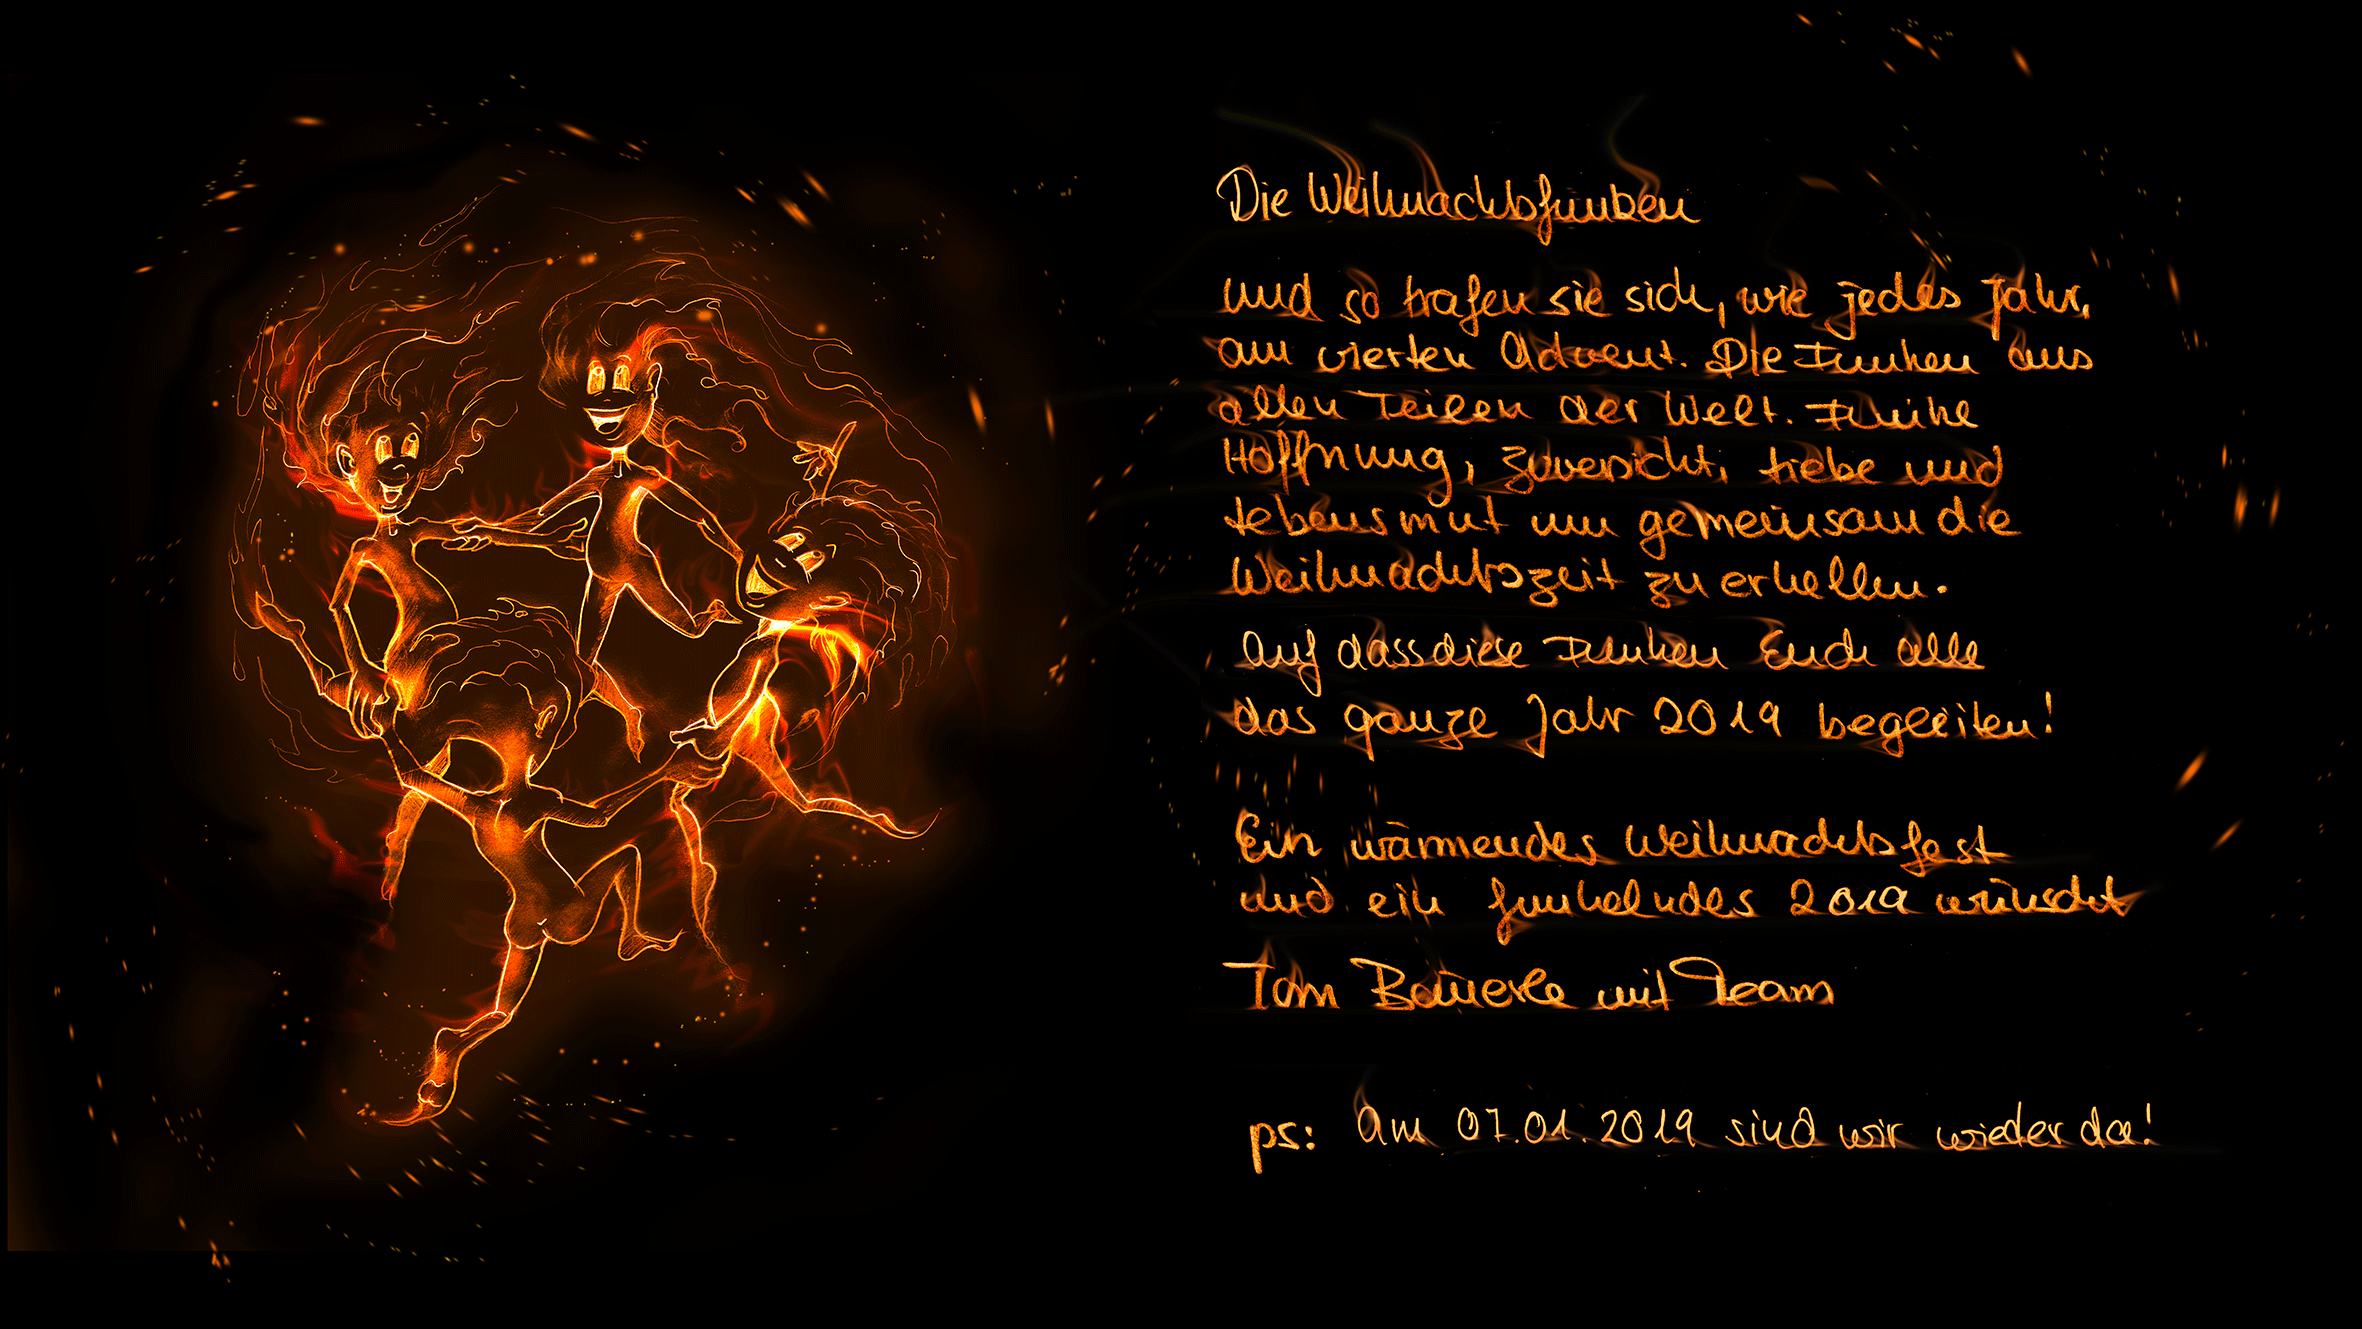 Die Weihnachtsfunken
und so trafen sie sich, wie jedes Jahr,
am vierten Advent. Die Funken aus
allen Teilen der Welt. Funke
Hoffnung, Zuversicht, Liebe und
Lebensmut um gemeinsam die
Weihnachtszeit zu erhellen.
Auf dass diese Funken Euch alle
das ganze Jahr 2019 begleiten!
Ein wärmendes Weihnachtsfest
und ein funkelndes 2019 wünscht
Tom Bäuerle mit Team
ps: Am 07.01.2019 sind wir wieder da!